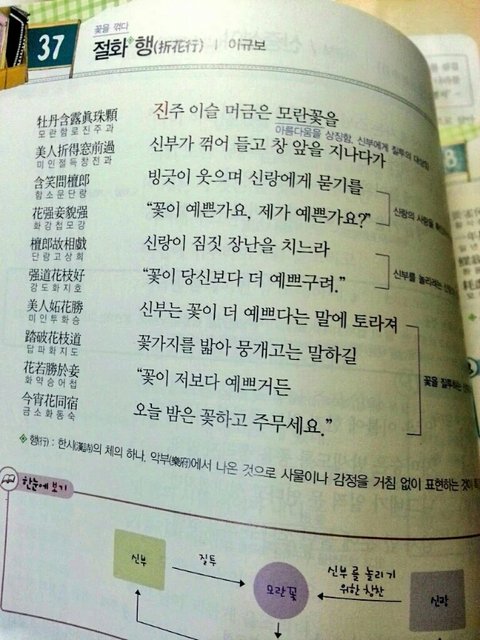 꽃을 꺾다
37 절화◆행(折花行) | 이규보
牡丹含露眞珠顆
모란함로진주과
진주 이슬 머금은 모란꽃을
아름다움을 상징함, 신부에게 질투의 대상임
美人折得窓前過
미인절득창전과
신부가 꺾어 들고 창 앞을 지나다가
含笑問檀郞
함소문단랑
빙긋이 웃으며 신랑에게 묻기를
花强妾貌强
화강첩모강
“꽃이 예쁜가요, 제가 예쁜가요?”
신랑의 사랑을
檀郞故相戱
단랑고상희
신랑이 짐짓 장난을 치느라
强道花枝好
강도화지호
“꽃이 당신보다 더 예쁘구려.”
신부를 놀리려는
美人妬花勝
미인투화승
신부는 꽃이 더 예쁘다는 말에 토라져
踏破花枝道
답파화지도
꽃가지를 밟아 뭉개고는 말하길
꽃을 질투하는
花若勝於妾
화약승어첩
“꽃이 저보다 예쁘거든
今宵花同宿
금소화동숙
오늘 밤은 꽃하고 주무세요.”
◆ 행(行) : 한시(漢詩)의 체의 하나. 악부(樂府)에서 나온 것으로 사물이나 감정을 거침 없이 표현하는 것이
한눈에 보기
신부
질투
모란꽃
신부를 놀리기
위한 칭찬
신랑